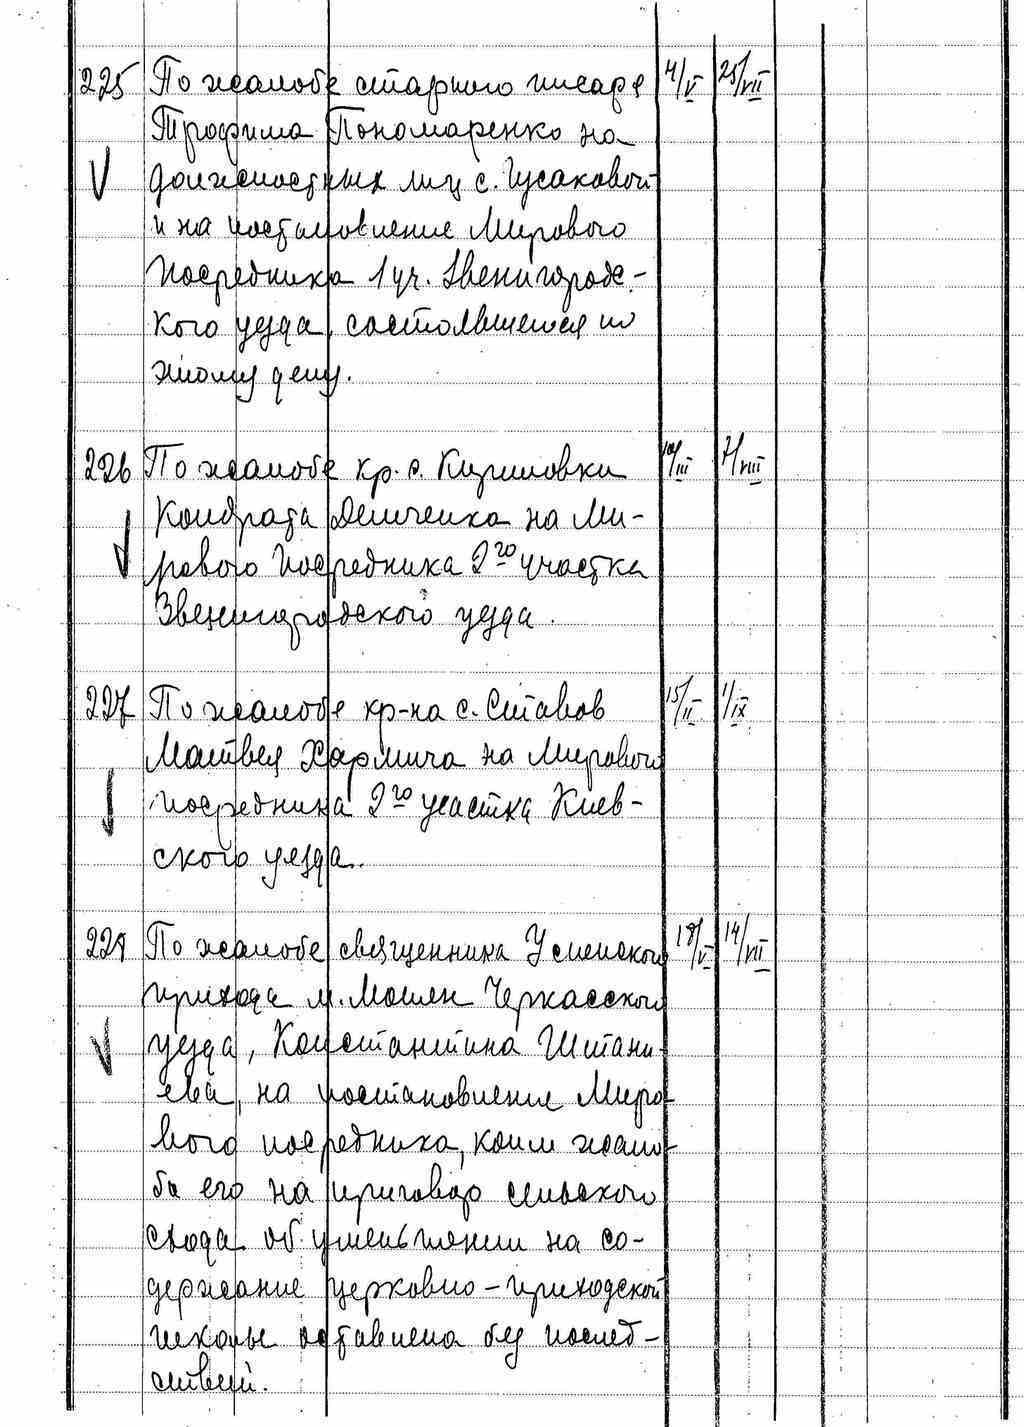 225 По жалобе старшего писаря 4/V 25/VII
Трофима Пономаренко на
должностных лиц с. Гусаковой
и на постановление Мирового
посредника 1 уч. Звенигородс-
кого уезда, состоявшееся по
этому делу.
226 По жалобе кр. с. Кирилловки /III 7/VIII
Кондрата Демченка на Ми-
рового Посредника 2го участка
Звенигородского уезда.
227 По жалобе кр-на с. Ставов 15/II 1/IX
Матвея на Мирового
посредника 2го участка Киев-
ского уезда.
По жалобе священника Успенского 18/V 14/VII
прихода м. Мошен Черкасского
уезда, Константина
на постановление Миро-
вого посредника, коим жало-
ба его на приговор сельского
схода об уменьшении на со-
держание церковно-приходской
школы оставлена без послед-
ствий.